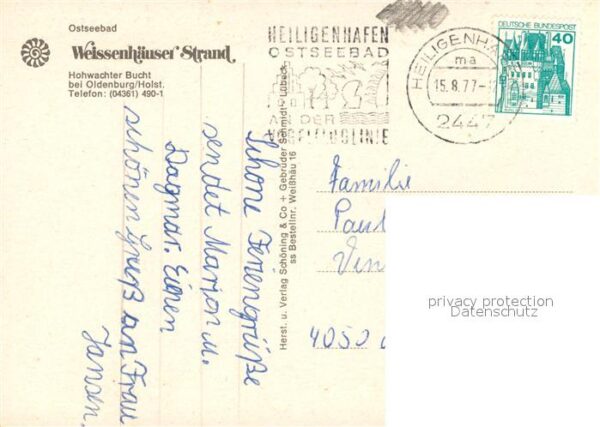 Ostseebad
Weissenhäuser Strand
Hohwachter Bucht
bei Oldenburg/Holst.
Telefon: (04361) 490-1
HEILIGENHAFEN
OSTSEEBAD
AN DER
VOGELFLUGLINIE
HEILIGENHA
ma
15.8.77-
2447
DEUTSCHE BUNDESPOST
40
Herst. u. Verlag Schöning & Co + Gebrüder Schmidt - Lübeck
ss Bestellnr. Weißhäu 16
Schöne Feriengrüße
sendet Marion u.
Dagmar. Einen
schönen Gruß an Frau
Jansen.
Familie
Paul
Vin
4050
privacy protection
Datenschutz